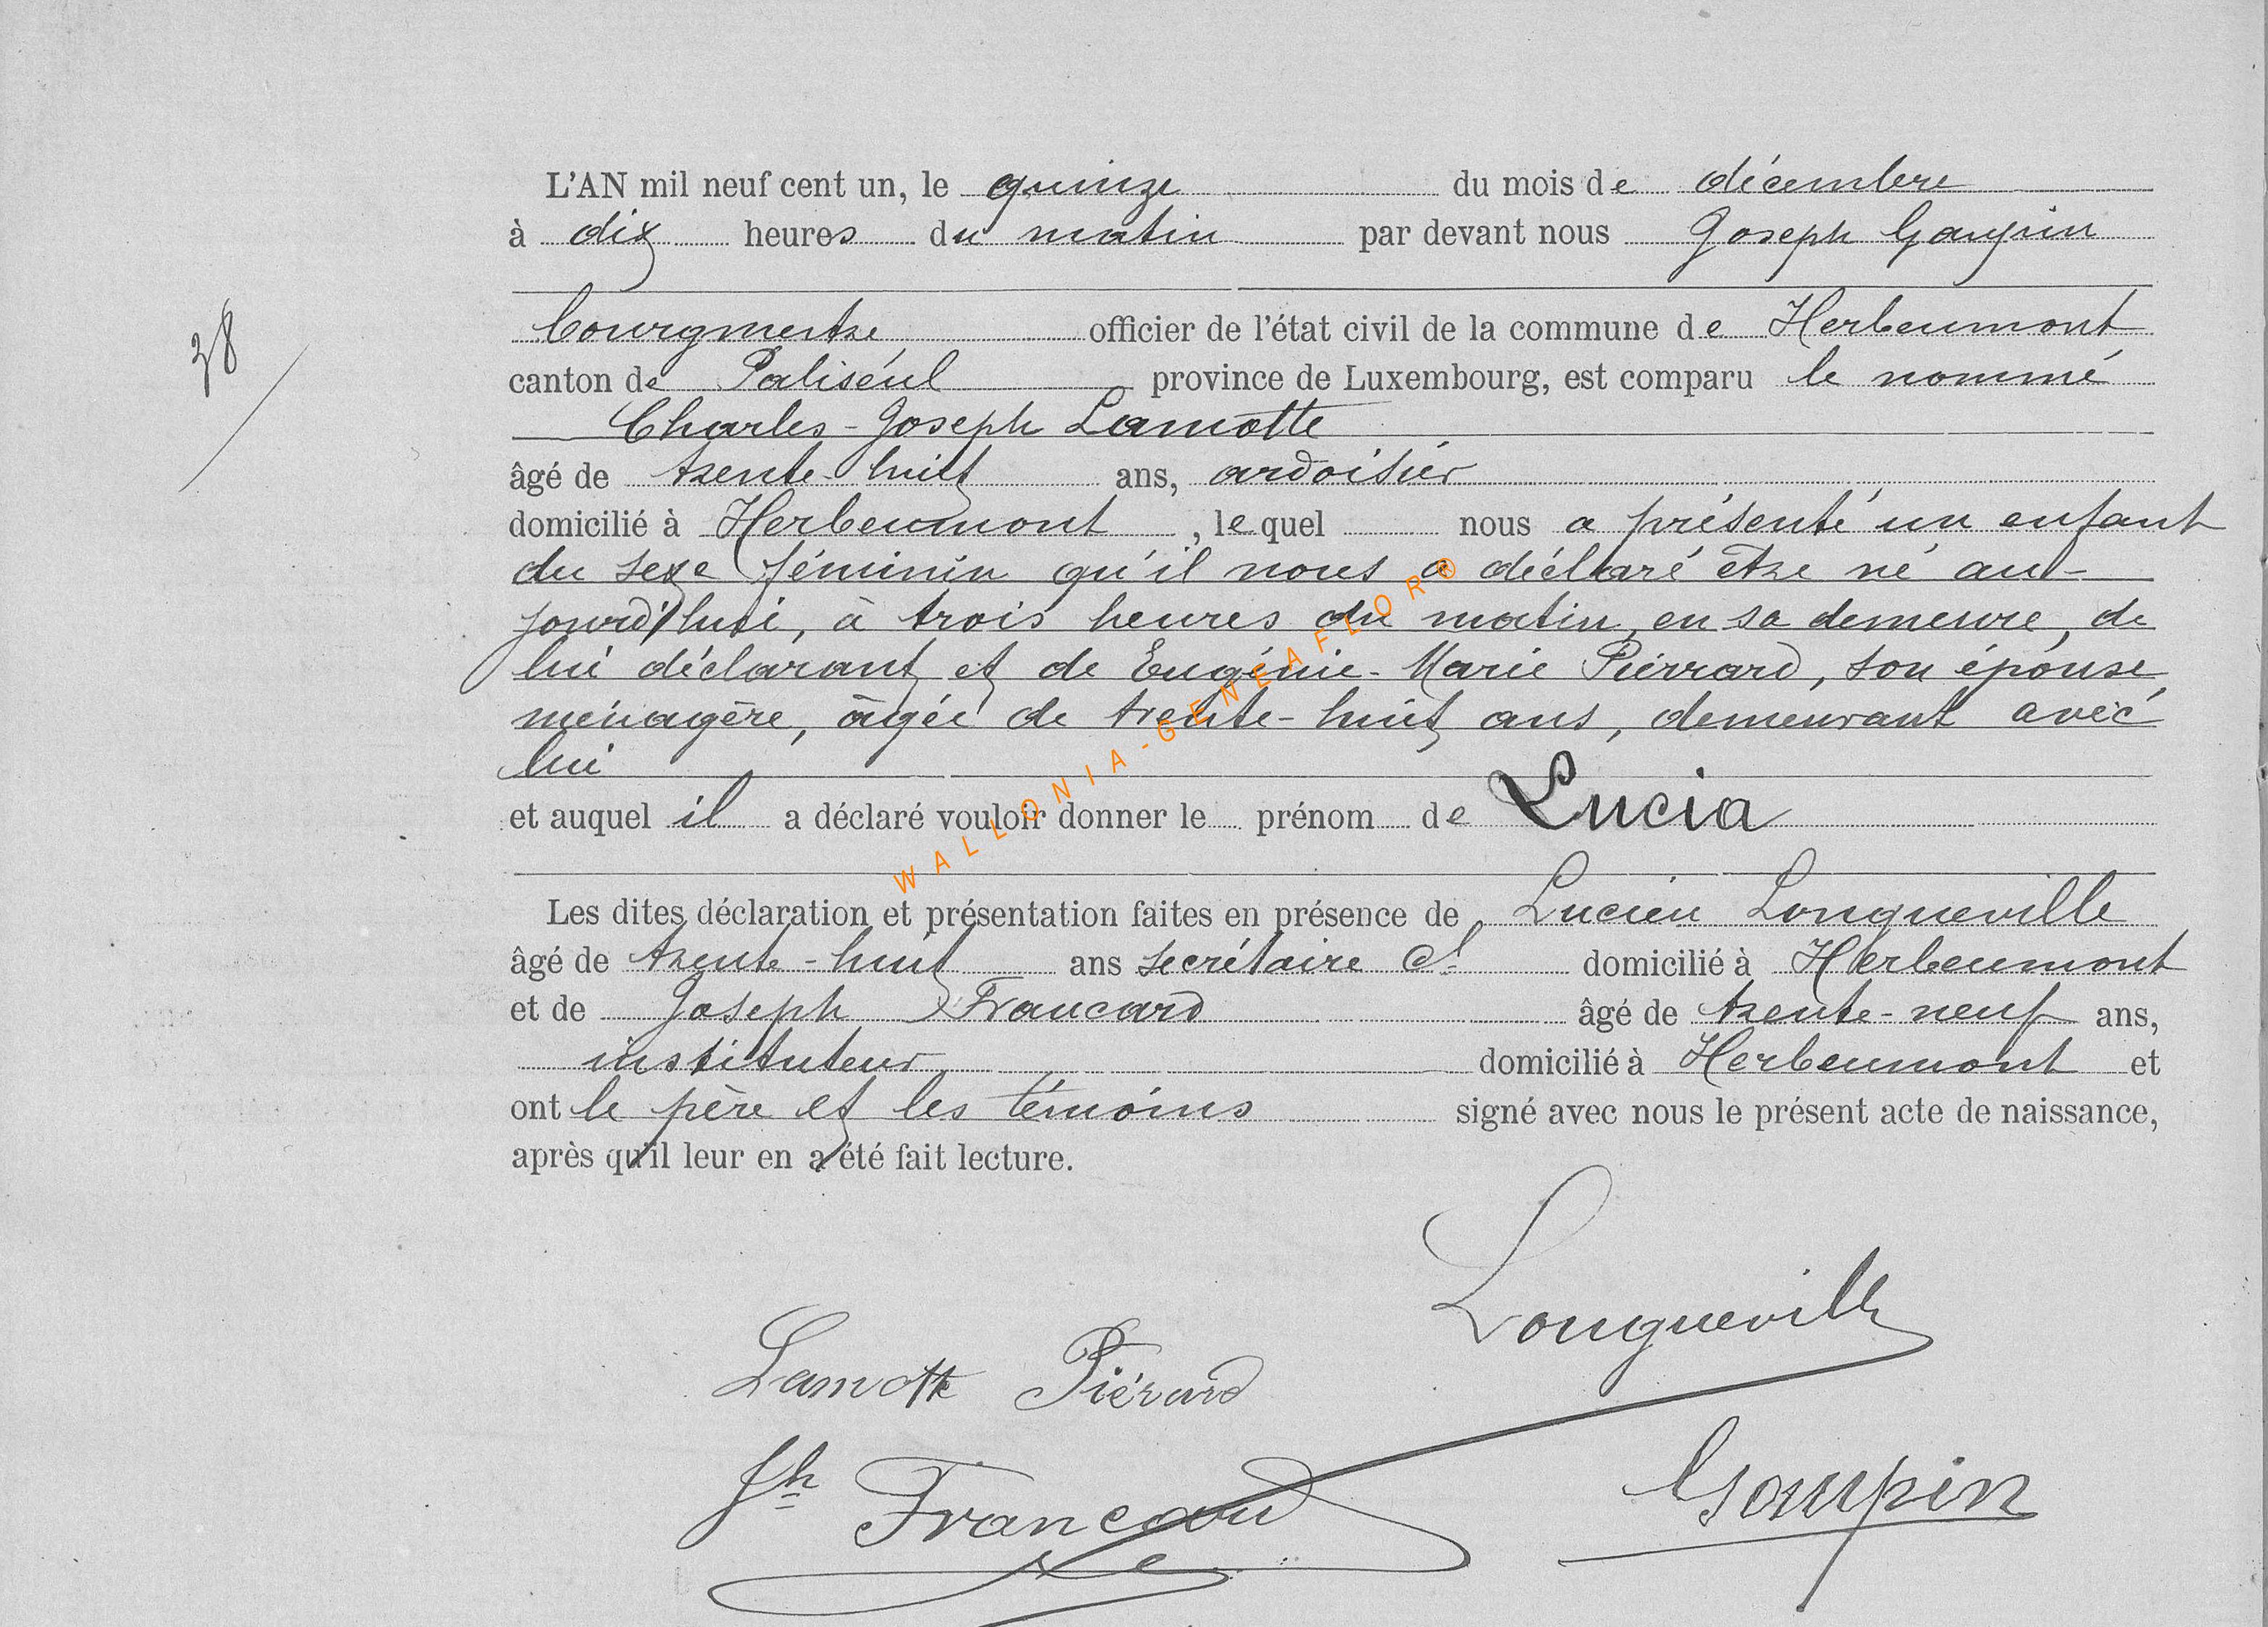 L'AN mil neuf cent un, le quinze du mois de décembre
à dix heures du matin par devant nous Joseph Gaupin
bourgmestre officier de l'état civil de la commune de Herbeumont
38
canton de Paliseul province de Luxembourg, est comparu le nommé
Charles-Joseph Lamotte
âgé de trente-huit ans, ardoisier
domicilié à Herbeumont, lequel nous a présenté un enfant
du sexe féminin qu'il nous a déclaré être né au-
jourd'hui, à trois heures du matin, en sa demeure, de
lui déclarant et de Eugénie-Marie Piérrard, son épouse,
ménagère, âgée de trente-huit ans, demeurant avec
lui
et auquel il a déclaré vouloir donner le prénom de Lucia
WALLONIA-GENEAFLOR®
Les dites déclaration et présentation faites en présence de Lucien Longueville
âgé de trente-huit ans secrétaire Cl domicilié à Herbeumont
et de Joseph Francard âgé de trente-neuf ans,
instituteur domicilié à Herbeumont et
ont le père et les témoins signé avec nous le présent acte de naissance,
après qu'il leur en a été fait lecture.
Longueville
Lamotte Piérard
Jh Francard
Gaupin